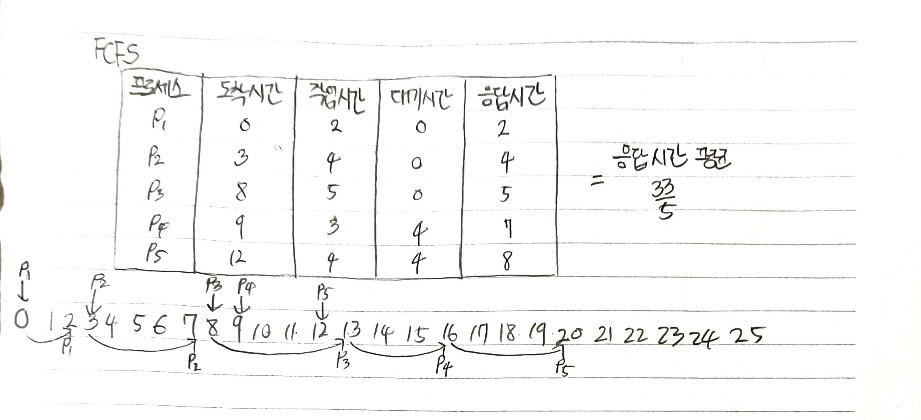 FCFS
프로세스 도착시간 작업시간 대기시간 응답시간
P1 0 2 0 2
P2 3 4 0 4
P3 8 5 0 5
P4 9 3 4 7
P5 12 4 4 8
= 응답시간 평균
33
5
P1 P2 P3 P4 P5
0 1 2 3 4 5 6 7 8 9 10 11 12 13 14 15 16 17 18 19 20 21 22 23 24 25
P1 P2 P3 P4 P5